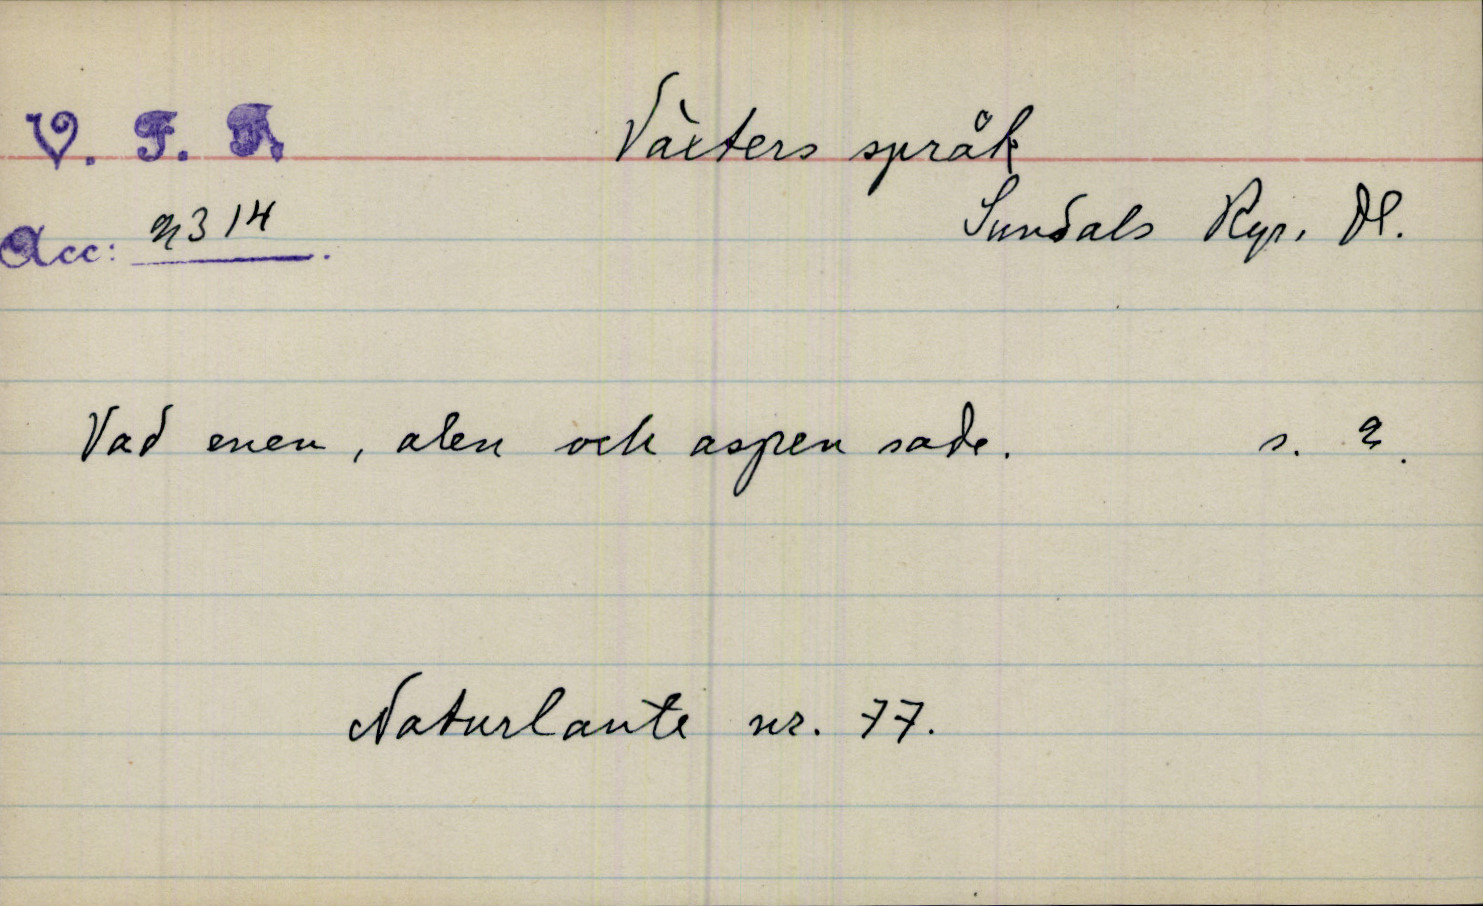 V. F. A
Växters språk
Acc: 2314.
Sundals Ryr, Dl.
Vad enen, alen och aspen sade. s. 2.
Naturlaute nr. 77.